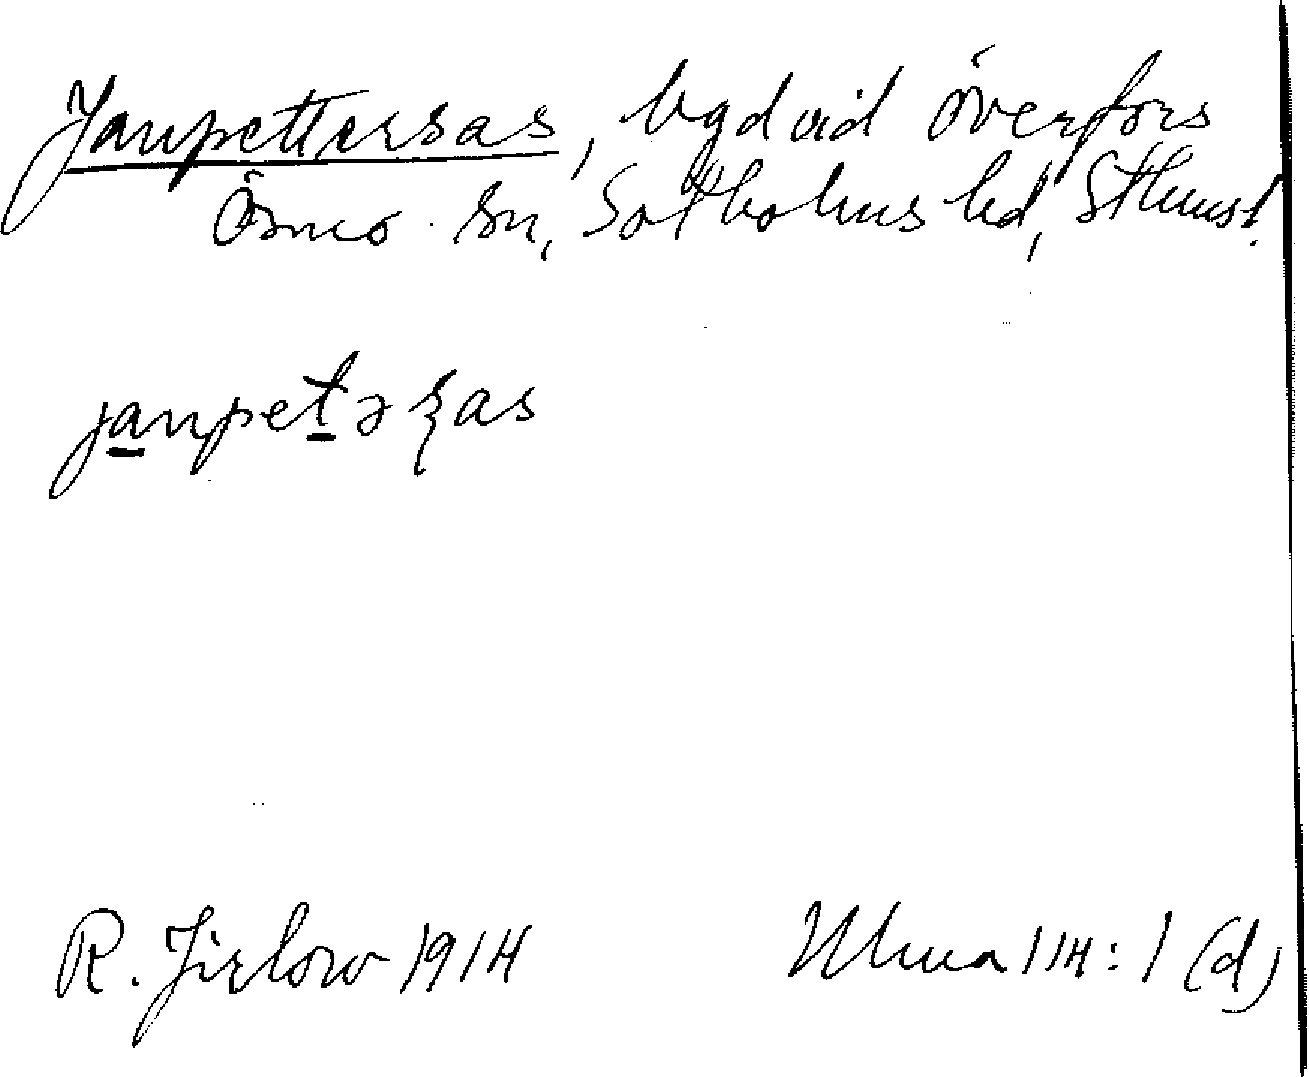 Janpettersas, bgd vid Överfors
Ösmo sn, Sotholms hd, Sthms l.
janpetəʂas
R. Jirlow 1914
Ulma 114:1 (d)